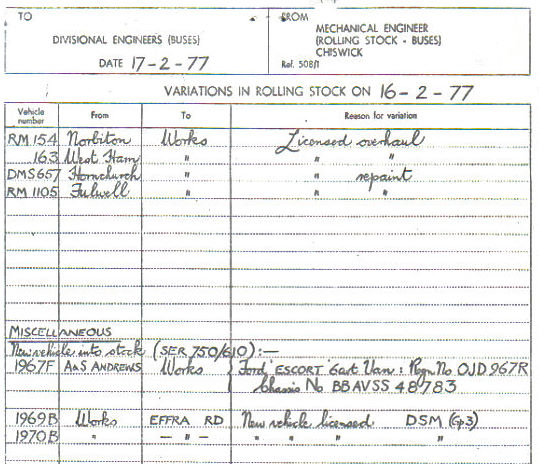 TO
FROM
DIVISIONAL ENGINEERS (BUSES)
MECHANICAL ENGINEER
(ROLLING STOCK - BUSES)
CHISWICK
DATE 17-2-77
Ref. 508/1
VARIATIONS IN ROLLING STOCK ON 16-2-77
Vehicle number From To Reason for variation
RM 154 Norbiton Works Licensed overhaul
163 West Ham " " "
DMS657 Hornchurch " " repaint
RM 1105 Fulwell " " "
MISCELLANEOUS
New vehicle into stock (SER 750/610) :—
1967F A&S ANDREWS Works Ford 'ESCORT' 6cwt Van : Regn. No OJD 967R
Chassis No BBAVSS 48783
1969B Works EFFRA RD New vehicle licensed DSM (Gp3)
1970B " — " — " " " "